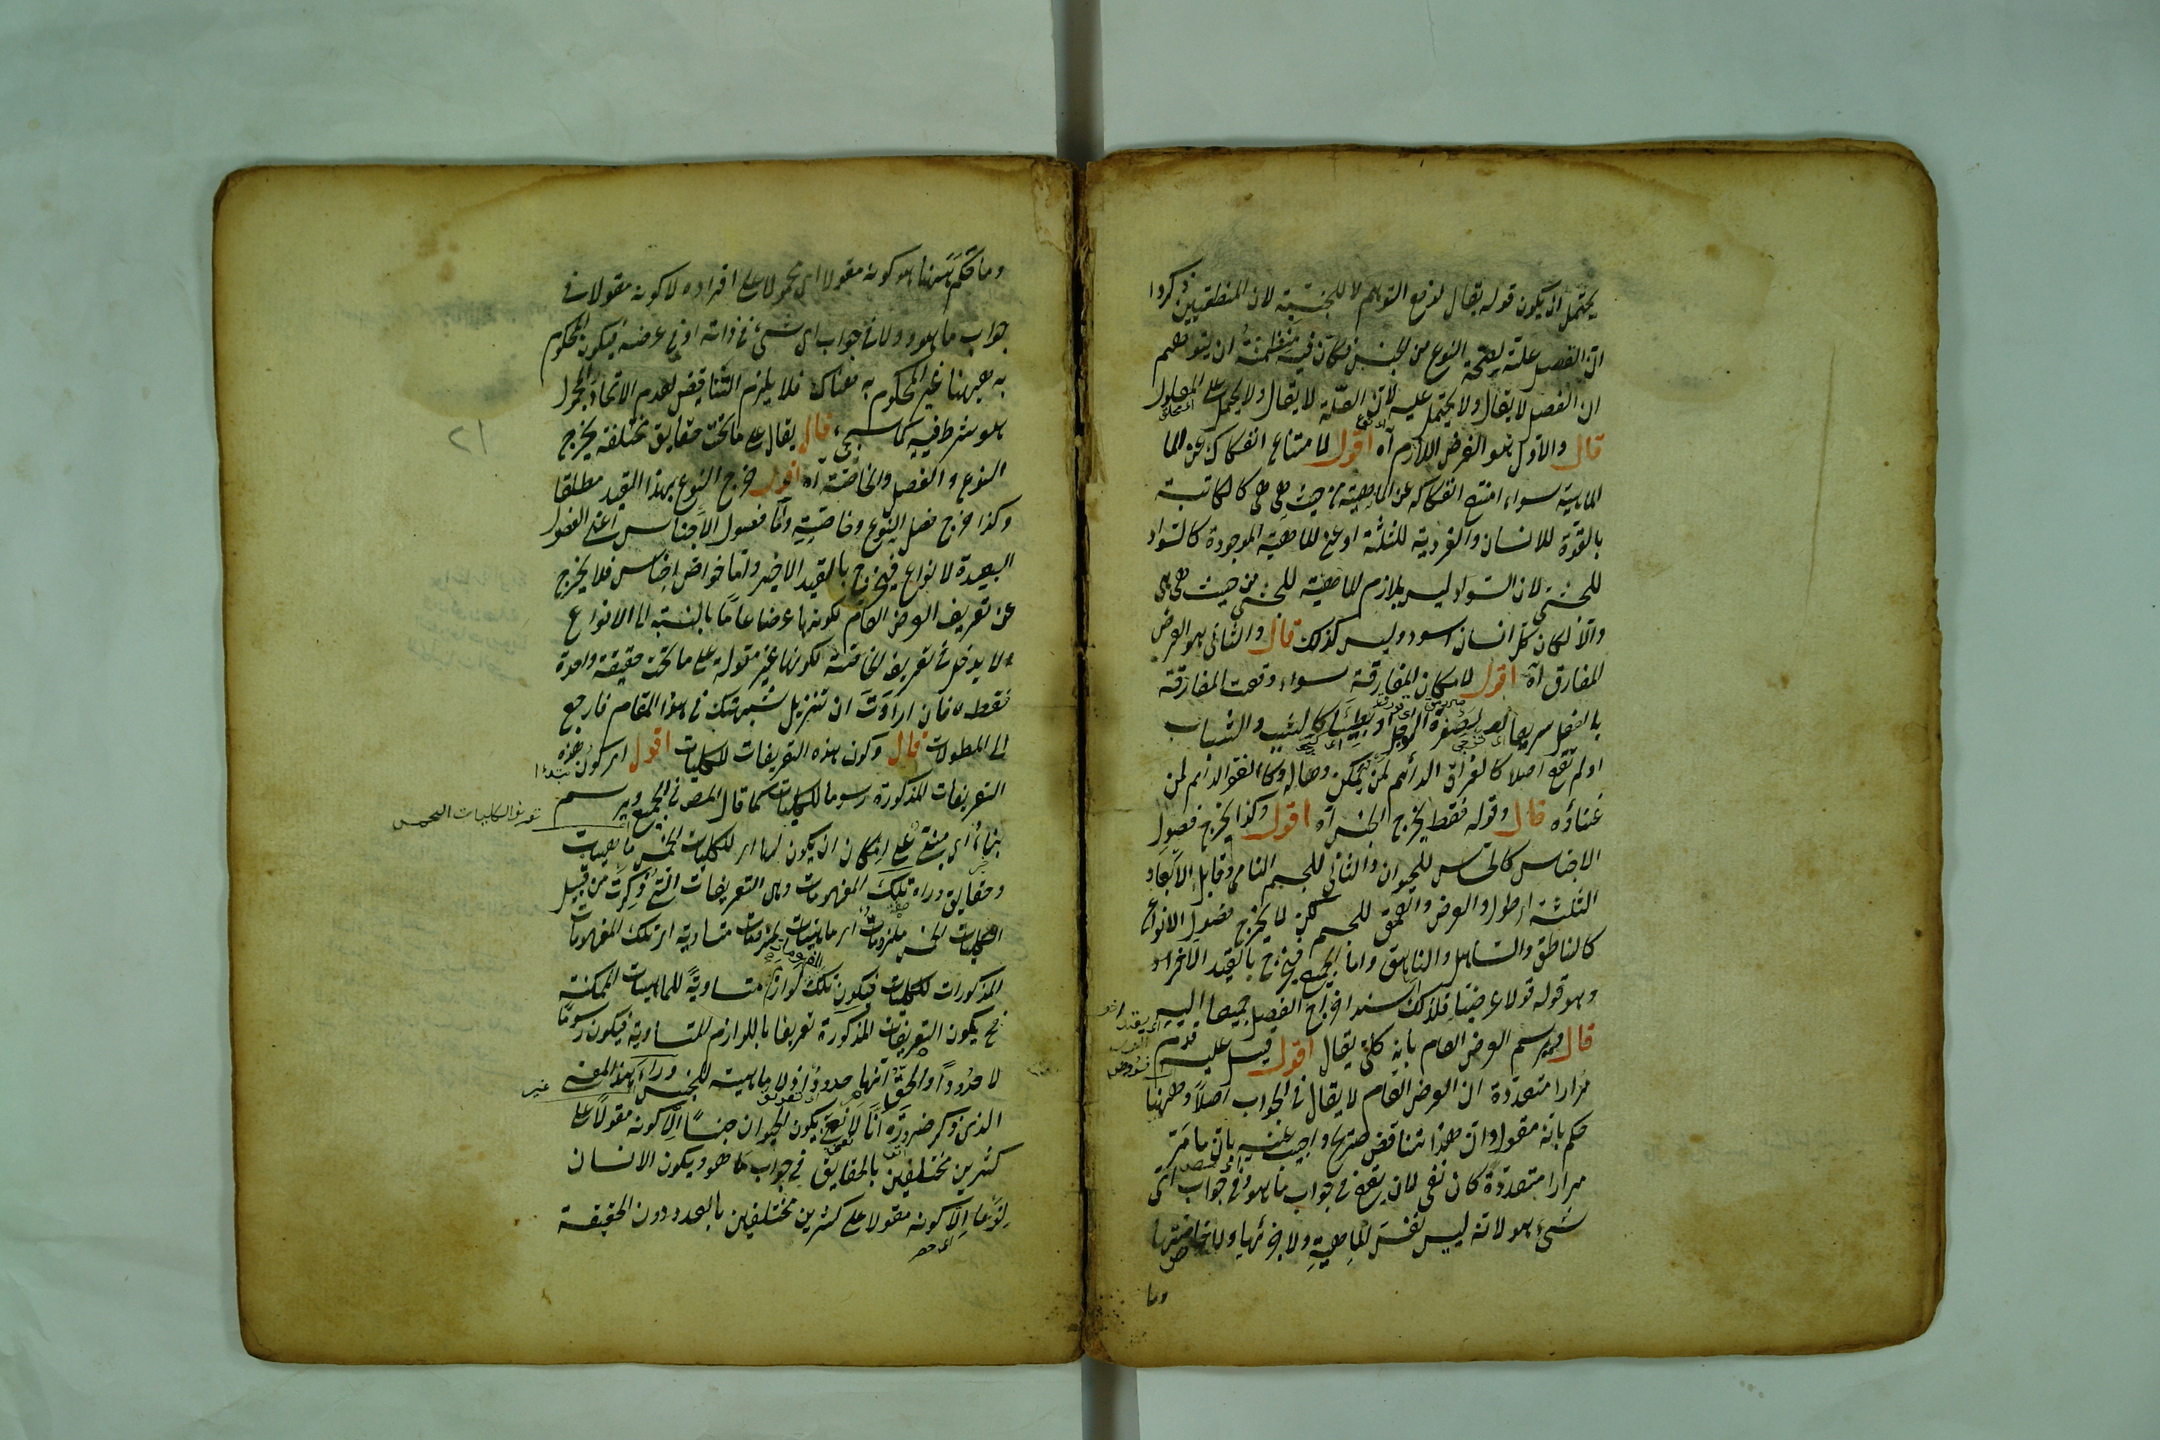 يحتمل ان يكون قوله يقال لدفع التوهم لا للجنسية لان المنطقيين ذكروا
ان الفصل علة لصحة النوع من الجنس فكان فيه مظنة ان يتوهم
ان الفصل لا يقال ولا يحمل عليه لان العلة لا يقال ولا يحمل على المعلول
قال والاول هو العرض اللازم آه اقول لامتناع انفكاك عن الما
الماهية سواء امتنع انفكاكه عن الماهية من حيث هي هي كالكاتبية
بالقوة للانسان والفردية للثلثة او عن الماهية الموجودة كالسواد
للحبشي لان السواد ليس بلازم لماهية للحبشي من حيث هي هي
والا لكان كل انسان اسود وليس كذلك قال والثاني هو العرض
المفارق آه اقول لامكان المفارقة سواء وقعت المفارقة
بالفعل سريعا كصفرة الوجل او بطيئا كالشيب والشباب
او لم تقع اصلا كالفراق الدائم لمن يمكن وصاله وكالفقر الدائم لمن
غناؤه قال وقوله فقط يخرج الجنس آه اقول وكذا يخرج فصول
الاجناس كالحساس للحيوان والثاني للجسم النامي وقابل الابعاد
الثلثة اي طول والعرض والعمق للجسم لكن لا يخرج فصول الانواع
كالناطق والصاهل والناهق واما الجميع فيخرج بالقيد الاخر
وهو قوله قولا عرضيا فلذلك اسند اخراج الفصل جميعا اليه
قال ويرسم العرض العام بانه كلي يقال اقول قيل عليه قدم
مرارا متعددة ان العرض العام لا يقال في الجواب اصلا وههنا
حكم بانه مقول وان هذا تناقض صريح واجيب عنه بان ما مر
مرارا متعددة كان نفى لان يقع في جواب ما هو وفي جواب اي
شيء هو لانه ليس نفس الماهية ولا جزئها ولا خاصتها
وما
وما حكم ههنا هو كونه مقولا اي محمولا على افراده لا كونه مقولا في
جواب ما هو ولا في جواب اي شيء في ذاته او في عرضه فيكون المحكوم
به ههنا غير المحكوم به هناك فلا يلزم التناقض لعدم الاتحاد المحمول
هو شرط فيه كما سيجيء قال يقال على ما تحت حقايق مختلفة يخرج
النوع والفصل والخاصة آه اقول خرج النوع بهذا القيد مطلقا
وكذا خرج فصل النوع وخاصته واما فصول الاجناس اعني الفصول
البعيدة لانواع فيخرج بالقيد الاخير واما خواص اجناس فلا يخرج
عن تعريف العرض العام لكونها عرضا عاما بالنسبة الى الانواع
ولا يدخل في تعريف الخاصة لكونها غير مقولة على ما تحت حقيقة واحدة
فقط فان اردت ان تنزيل شبهتك في هذا المقام فارجع
الى المطولات قال وكون هذه التعريفات للكليات اقول اي كون هذه
التعريفات المذكورة رسوما للكليات كما قال المص في الجميع ويرسم
تعريف الكليات الخمس
بناء اي مبنى على امكان ان يكون لها اي للكليات الخمس ماهيات
وحقايق وراء تلك المفهومات وهي التعريفات التي ذكرت من قبيل
الكليات الخمس ملزومات اي ماهيات ملزومات متساوية اي تلك المفهومات
المذكورات للكليات فيكون تلك لوازم متساوية للماهيات الممكنة
فح يكون التعريفات المذكورة تعريفا باللوازم المتساوية فيكون رسوما
لا حدودا والحق انها حدود اذ لا ماهية للجنس وراء هذا المعنى
الذي ذكر ضرورة انا لا نعني بكون الحيوان جنسا الا كونه مقولا على
كثيرين مختلفين بالحقايق في جواب ما هو وبكون الانسان
نوعا الا كونه مقولا على كثيرين مختلفين بالعدد دون الحقيقة